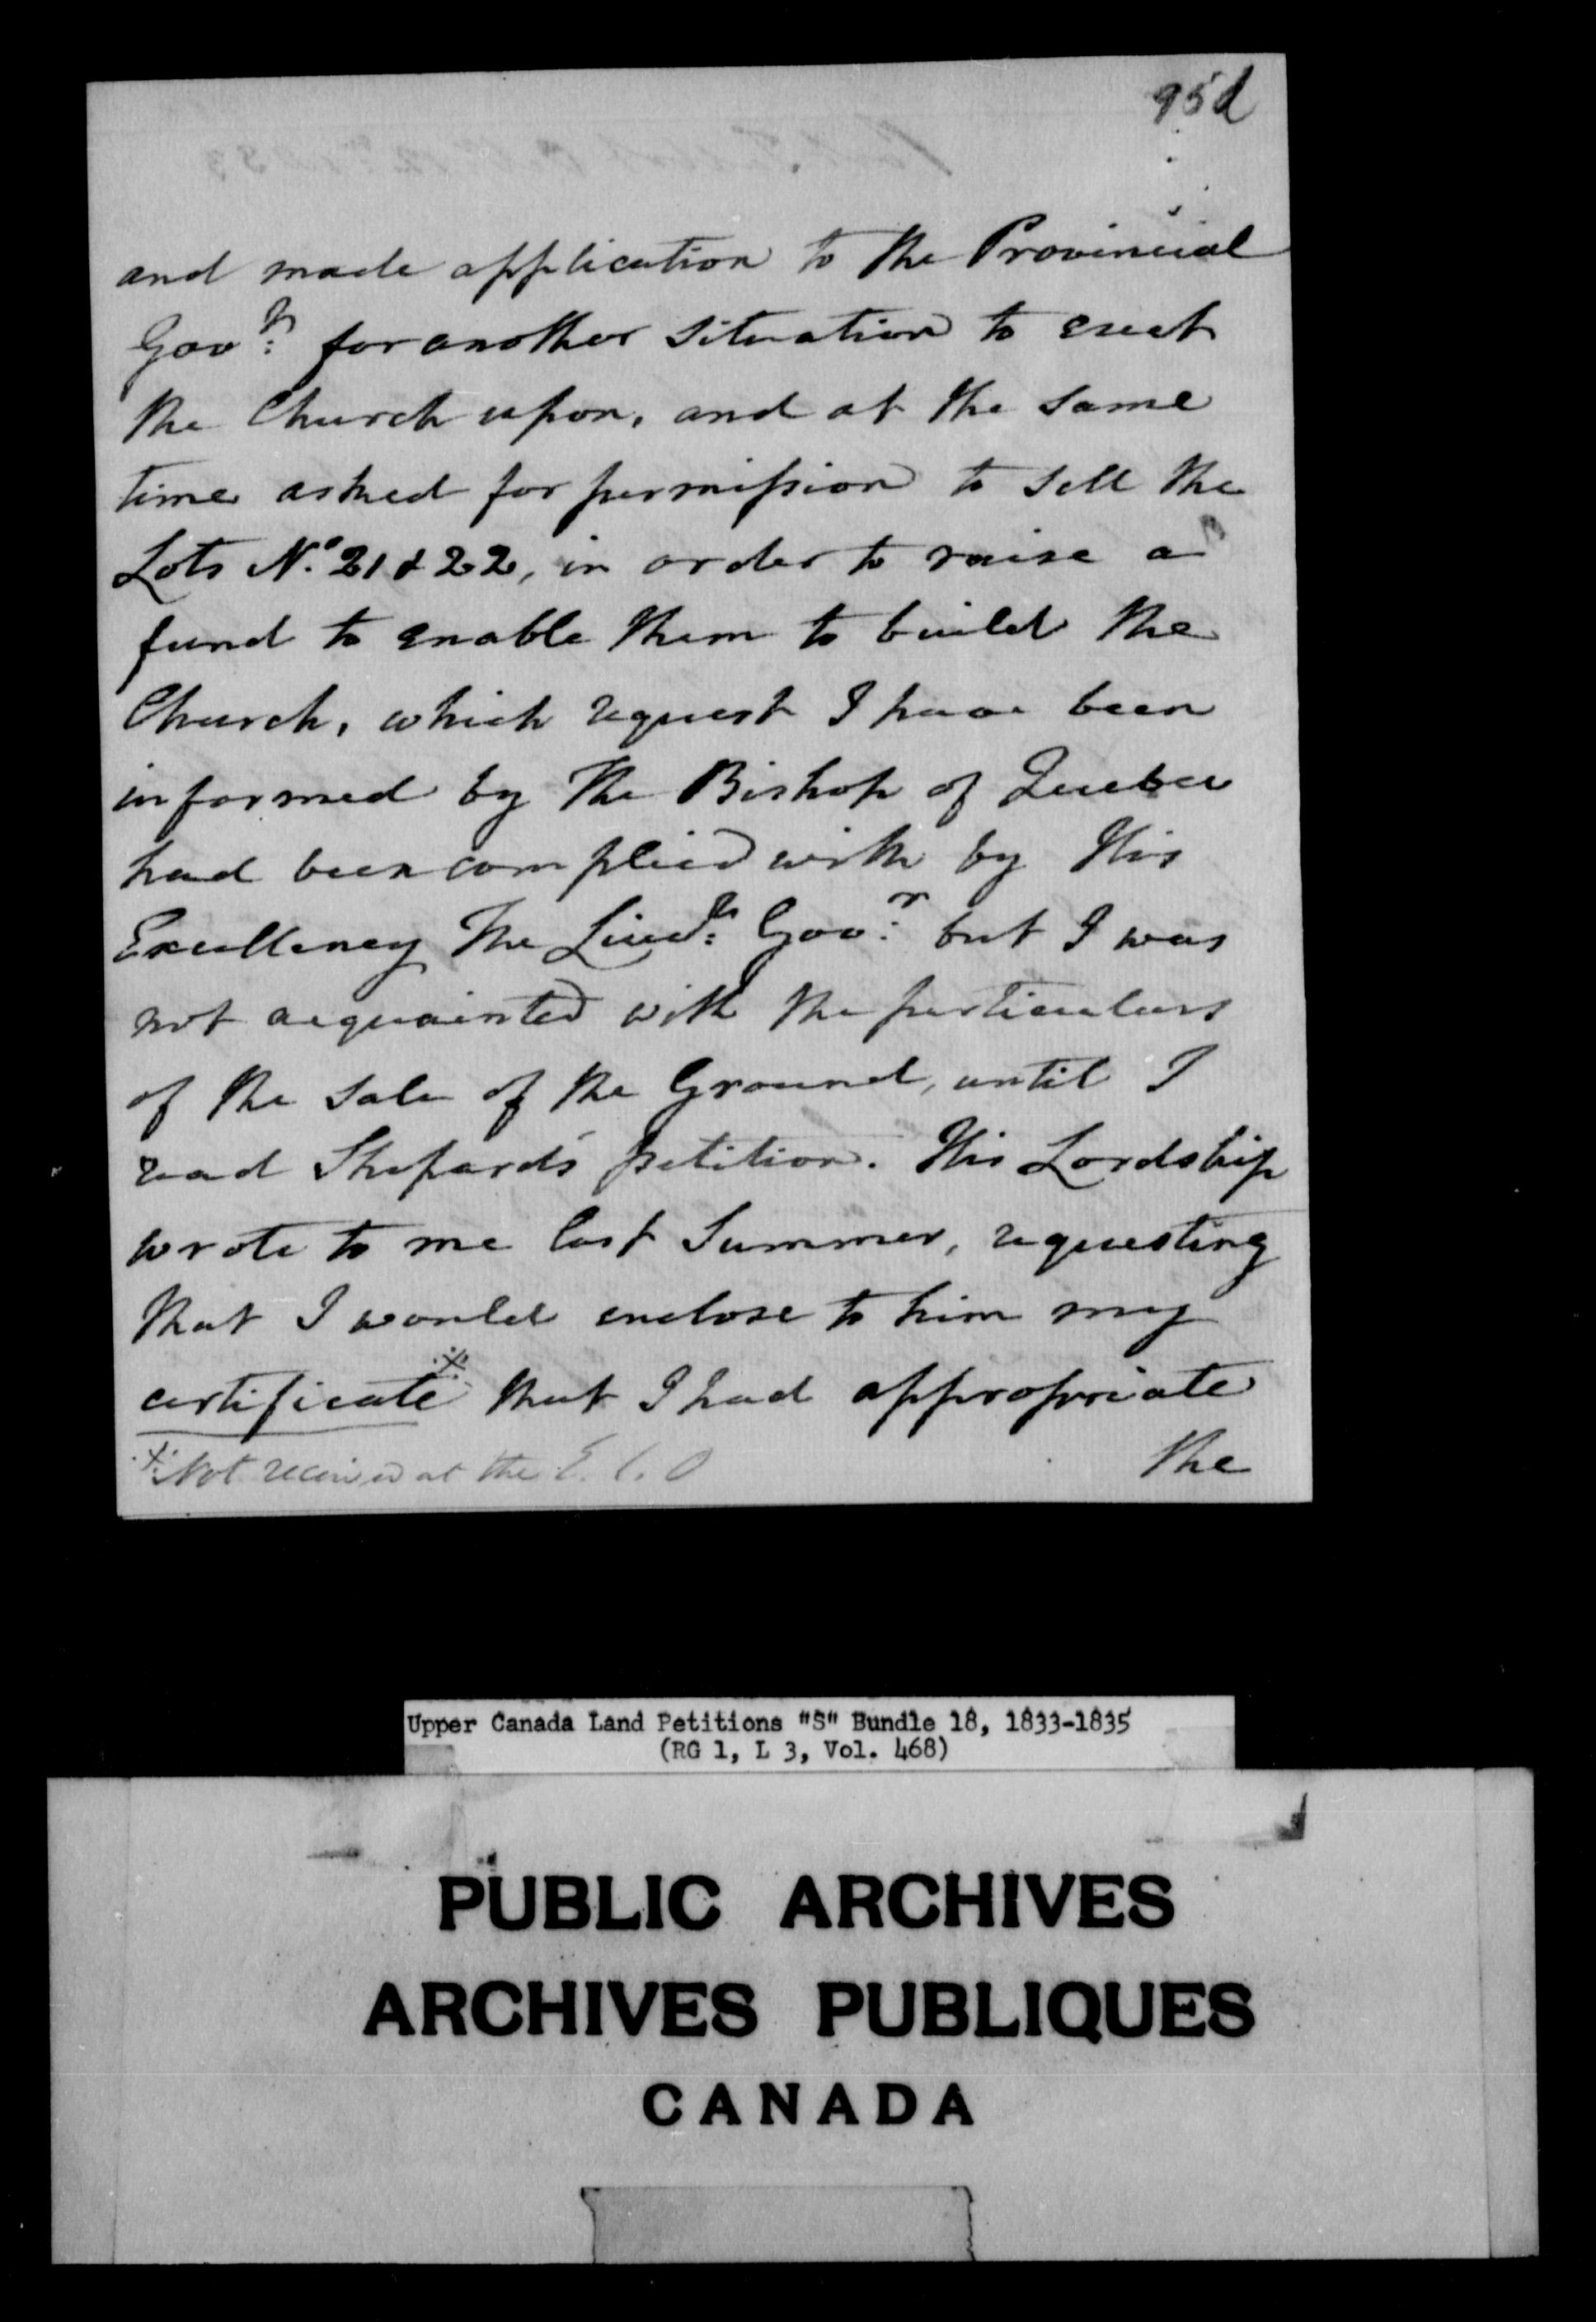 95d
and made application to the Provincial
Gov.t for another situation to erect
the Church upon, and at the same
time asked for permission to sell the
Lots No. 21 & 22, in order to raise a
fund to enable them to build the
Church, which request I have been
informed by the Bishop of Quebec
had been complied with by His
Excellency The Lieut: Gov:r but I was
not acquainted with the particulars
of the sale of the Ground, until I
read Shepard's petition. His Lordship
wrote to me last Summer, requesting
that I would enclose to him my
certificate※ that I had appropriate
the
※ Not received at the E. C. O
Upper Canada Land Petitions "S" Bundle 18, 1833-1835
(RG 1, L 3, Vol. 468)
PUBLIC ARCHIVES
ARCHIVES PUBLIQUES
CANADA